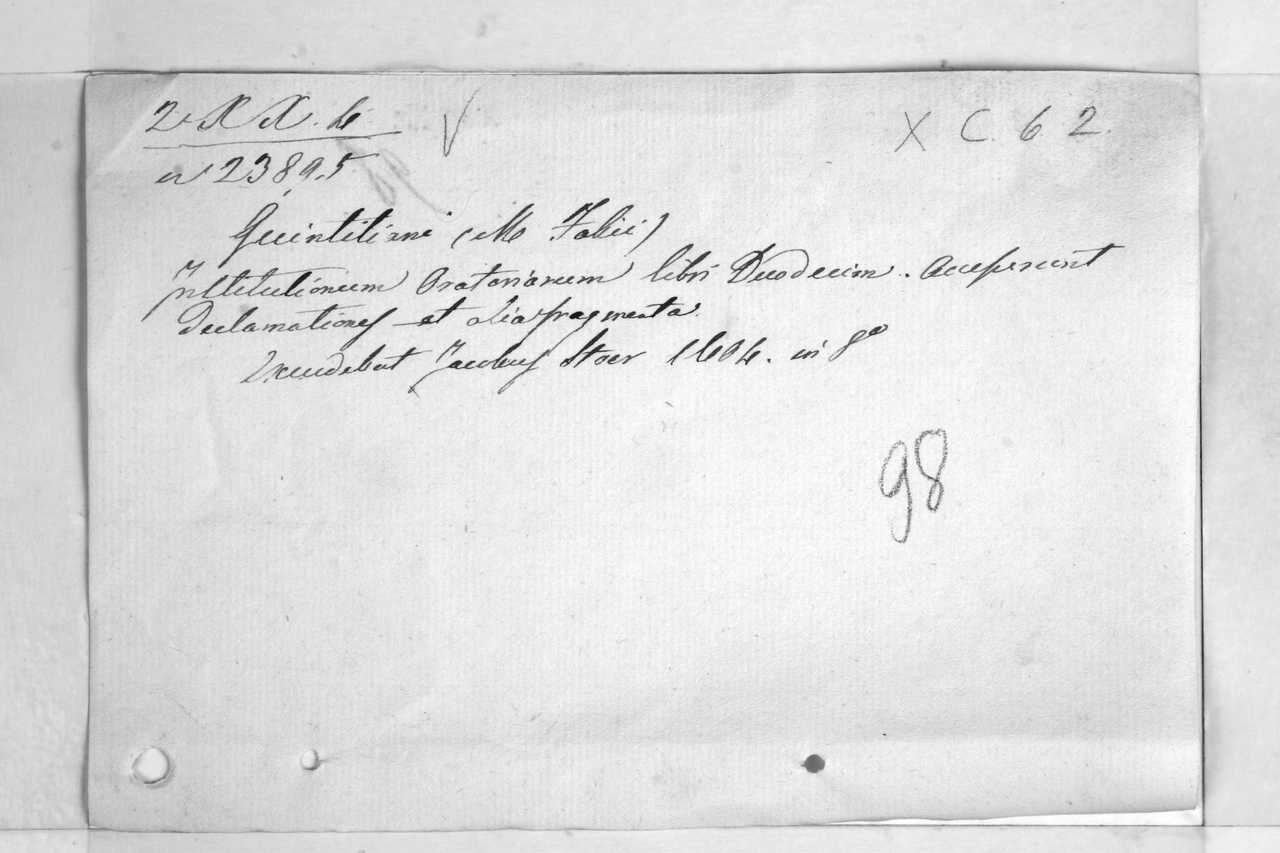 2. X X. 4. V X C. 6 2.
n° 2389.5
Quintiliani (M Fabii)
Institutionum Oratoriarum libri Duodecim. accesserunt
declamationes et alia fragmenta.
Excudebat Jacobus Stoer 1604. in 8°
98